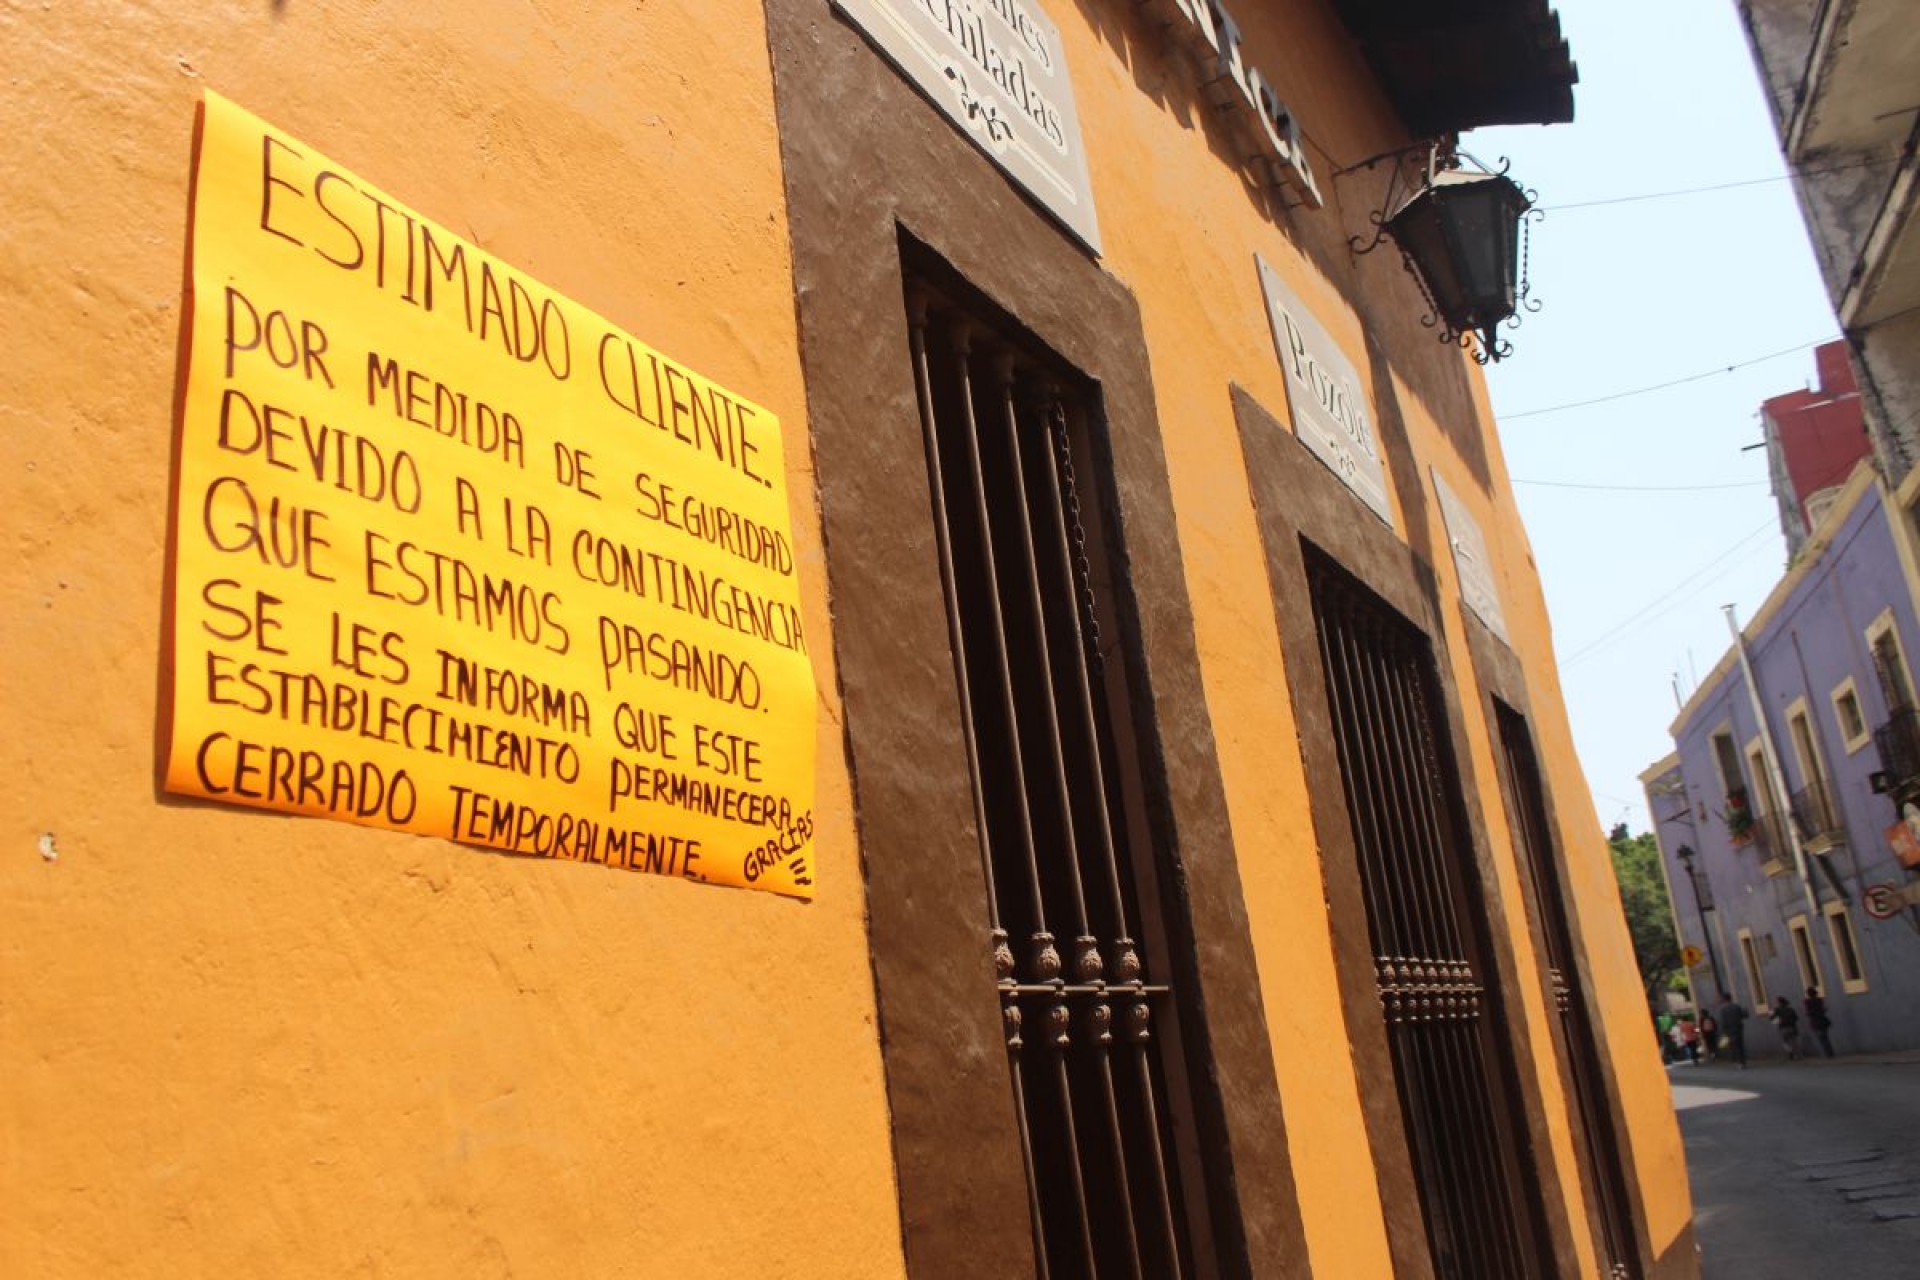 ESTIMADO CLIENTE.
POR MEDIDA DE SEGURIDAD
DEVIDO A LA CONTINGENCIA
QUE ESTAMOS PASANDO.
SE LES INFORMA QUE ESTE
ESTABLECIMIENTO PERMANECERA
CERRADO TEMPORALMENTE. GRACIAS
Pozole
E